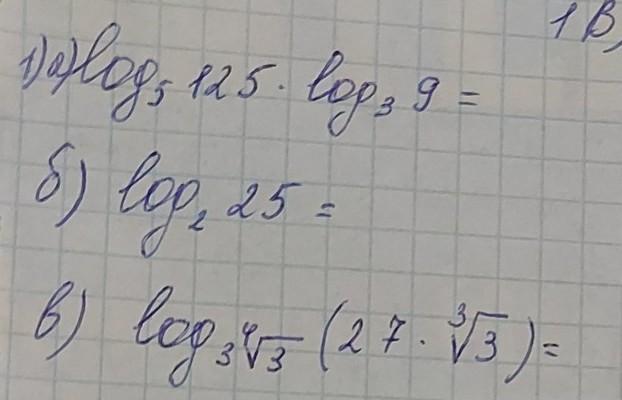 1 В,
1) а) log₅ 125 · log₃ 9 =
б) log₂ 25 =
в) log₃∜3 (27 · ∛3) =